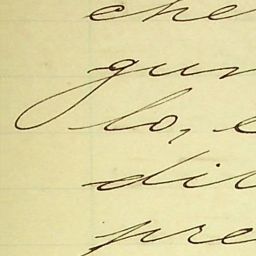 che
gun
lo, e
dit
pre